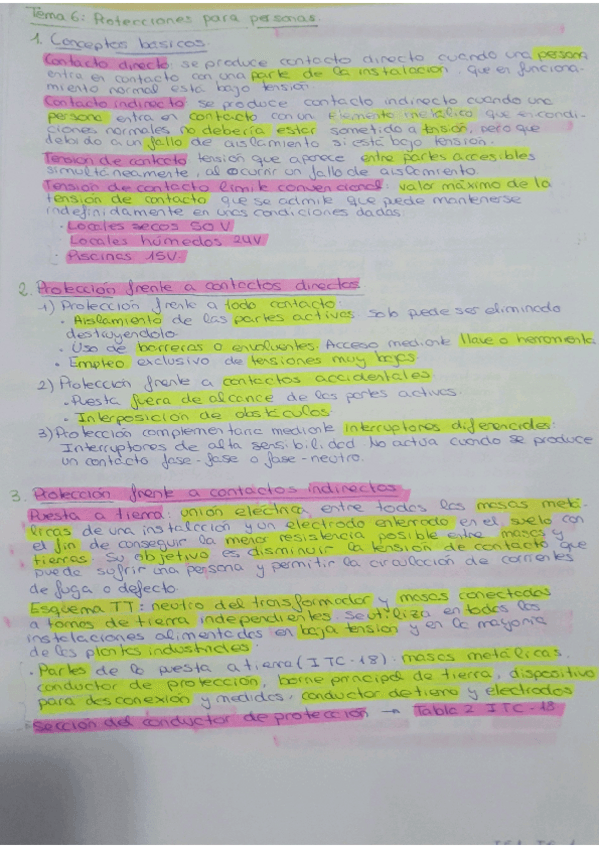 Tema 6: Protecciones para personas.
1. Conceptos básicos.
Contacto directo: se produce contacto directo cuando una persona
entra en contacto con una parte de la instalación, que en funciona-
miento normal está bajo tensión.
Contacto indirecto: se produce contacto indirecto cuando una
persona entra en contacto con un elemento metálico que en condi-
ciones normales no debería estar sometido a tensión, pero que
debido a un fallo de aislamiento si está bajo tensión.
Tensión de contacto: tensión que aparece entre partes accesibles
simultáneamente, al ocurrir un fallo de aislamiento.
Tensión de contacto límite convencional: valor máximo de la
tensión de contacto que se admite que puede mantenerse
indefinidamente en unas condiciones dadas.
· Locales secos 50 V
Locales húmedos 24V
· Piscinas 15V.
2. Protección frente a contactos directos
1) Protección frente a todo contacto:
· Aislamiento de las partes activas solo puede ser eliminado
destruyéndolo.
· Uso de barreras o envolventes. Acceso mediante llave o herramienta.
· Empleo exclusivo de tensiones muy bajas.
2) Protección frente a contactos accidentales
· Puesta fuera de alcance de las partes activas.
· Interposición de obstáculos.
3) Protección complementaria mediante interruptores diferenciales:
Interruptores de alta sensibilidad. No actua cuando se produce
un contacto fase-fase o fase-neutro.
3. Protección frente a contactos indirectos
Puesta a tierra: unión eléctrica, entre todas las masas metá-
licas de una instalación y un electrodo enterrado en el suelo con
el fin de conseguir la menor resistencia posible entre masas y
tierras. Su objetivo es disminuir la tensión de contacto que
puede sufrir una persona y permitir la circulación de corrientes
de fuga o defecto.
Esquema TT: neutro del transformador y masas conectadas
a tomas de tierra independientes. se utiliza en todas las
instalaciones alimentadas en baja tensión y en la mayoría
de las plantas industriales.
· Partes de la puesta a tierra (ITC-18): masas metálicas,
conductor de protección, borne principal de tierra, dispositivo
para desconexión y medidas, conductor de tierra y electrodos
Sección del conductor de protección → Tabla 2 ITC-18